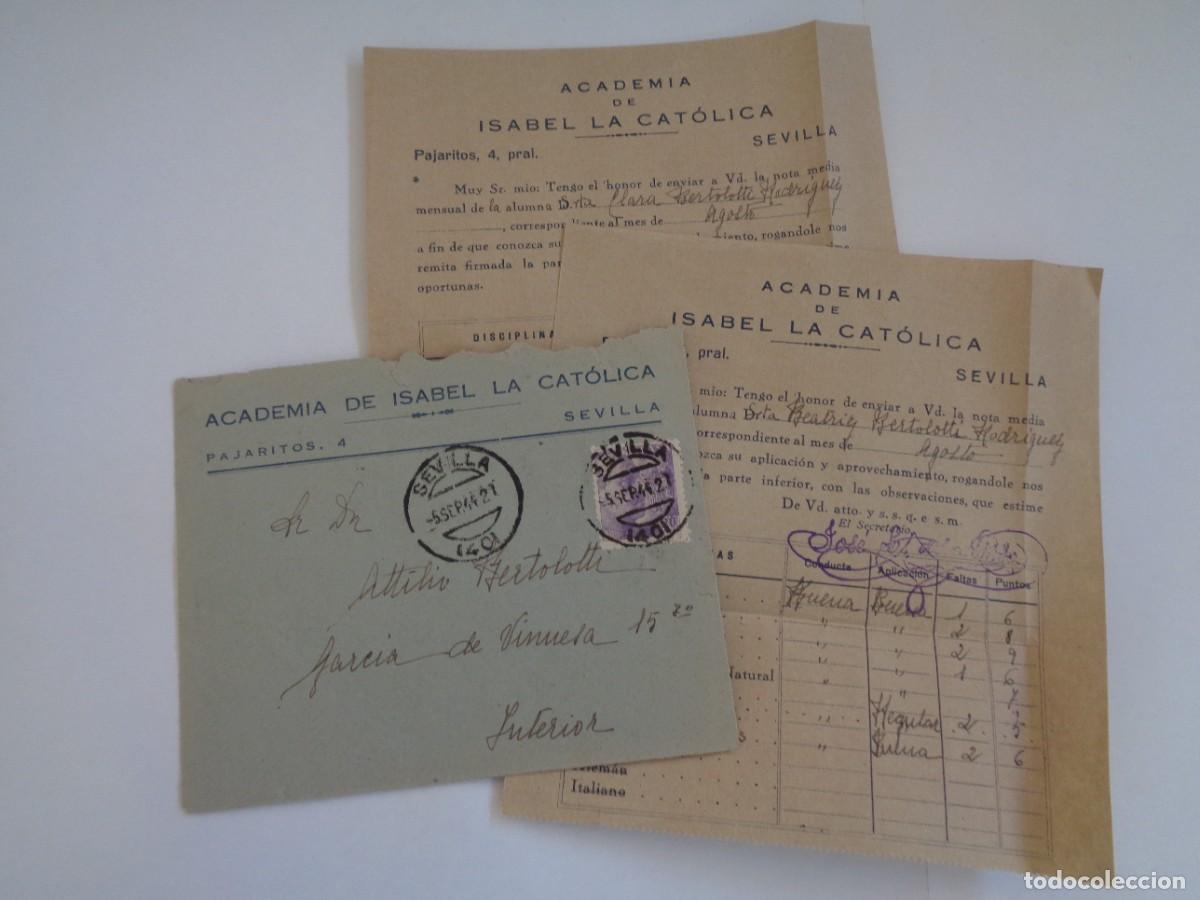 ACADEMIA
DE
ISABEL LA CATÓLICA
SEVILLA
Pajaritos, 4, pral.
Muy Sr. mio: Tengo el honor de enviar a Vd. la nota media
mensual de la alumna Srta Clara Bertolotti Rodriguez
, correspondiente al mes de Agosto
a fin de que conozca su miento, rogandole nos
remita firmada la par
oportunas.
DISCIPLINA
ACADEMIA
DE
ISABEL LA CATÓLICA
, pral.
SEVILLA
mio: Tengo el honor de enviar a Vd. la nota media
alumna Srta Beatriz Bertolotti Rodriguez
correspondiente al mes de Agosto
ozca su aplicación y aprovechamiento, rogandole nos
la parte inferior, con las observaciones, que estime
De Vd. atto. y s. s. q. e s. m.
El Secretario,
José
AS Conducta Aplicación Faltas Puntos
Buena Buena 1 6
" " 2 8
" " 2 9
Natural " " 1 6
" 7
" Regular 2 5
s " Buena 2 6
Alemán
Italiano
ACADEMIA DE ISABEL LA CATÓLICA
PAJARITOS, 4 SEVILLA
SEVILLA
-5 SEP.44.21
(40)
SEVILLA
-5 SEP.44.21
(40)
Sr Dn
Attilio Bertolotti
Garcia de Vinuesa 15 2º
Interior
todocoleccion